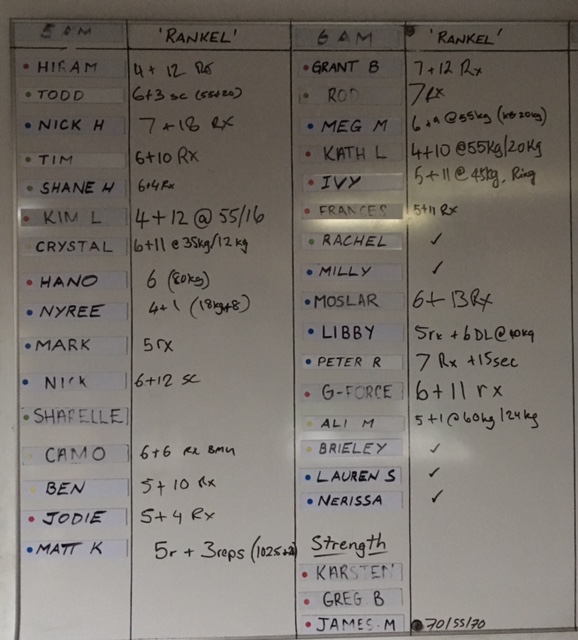 5 AM 'RANKEL' 6 AM 'RANKEL'
HIRAM 4+12 Rx GRANT B 7+12 Rx
TODD 6+3 sc (55+20) ROD 7Rx
NICK H 7+18 RX MEG M 6+9 @55kg (KB 20kg)
TIM 6+10 RX KATH L 4+10 @55Kg/20Kg
SHANE H 6+4Rx IVY 5+11@45kg, Ring
KIM L 4+12 @ 55/16 FRANCES 5+11 Rx
CRYSTAL 6+11 @35kg/12kg RACHEL ✓
HANO 6 (80kg) MILLY ✓
NYREE 4+1 (18kg+8) MOSLAR 6+13Rx
MARK 5rx LIBBY 5rx + 6DL@40kg
NICK 6+12 SC PETER R 7 Rx +15sec
SHARELLE G-FORCE 6+11 rx
CAMO 6+6 Rx BMU ALI M 5+1@60kg/24kg
BEN 5+10 Rx BRIELEY ✓
JODIE 5+4 Rx LAUREN S ✓
NERISSA ✓
MATT K 5r + 3reps Strength
KARSTEN
GREG B
JAMES M 70/55/70